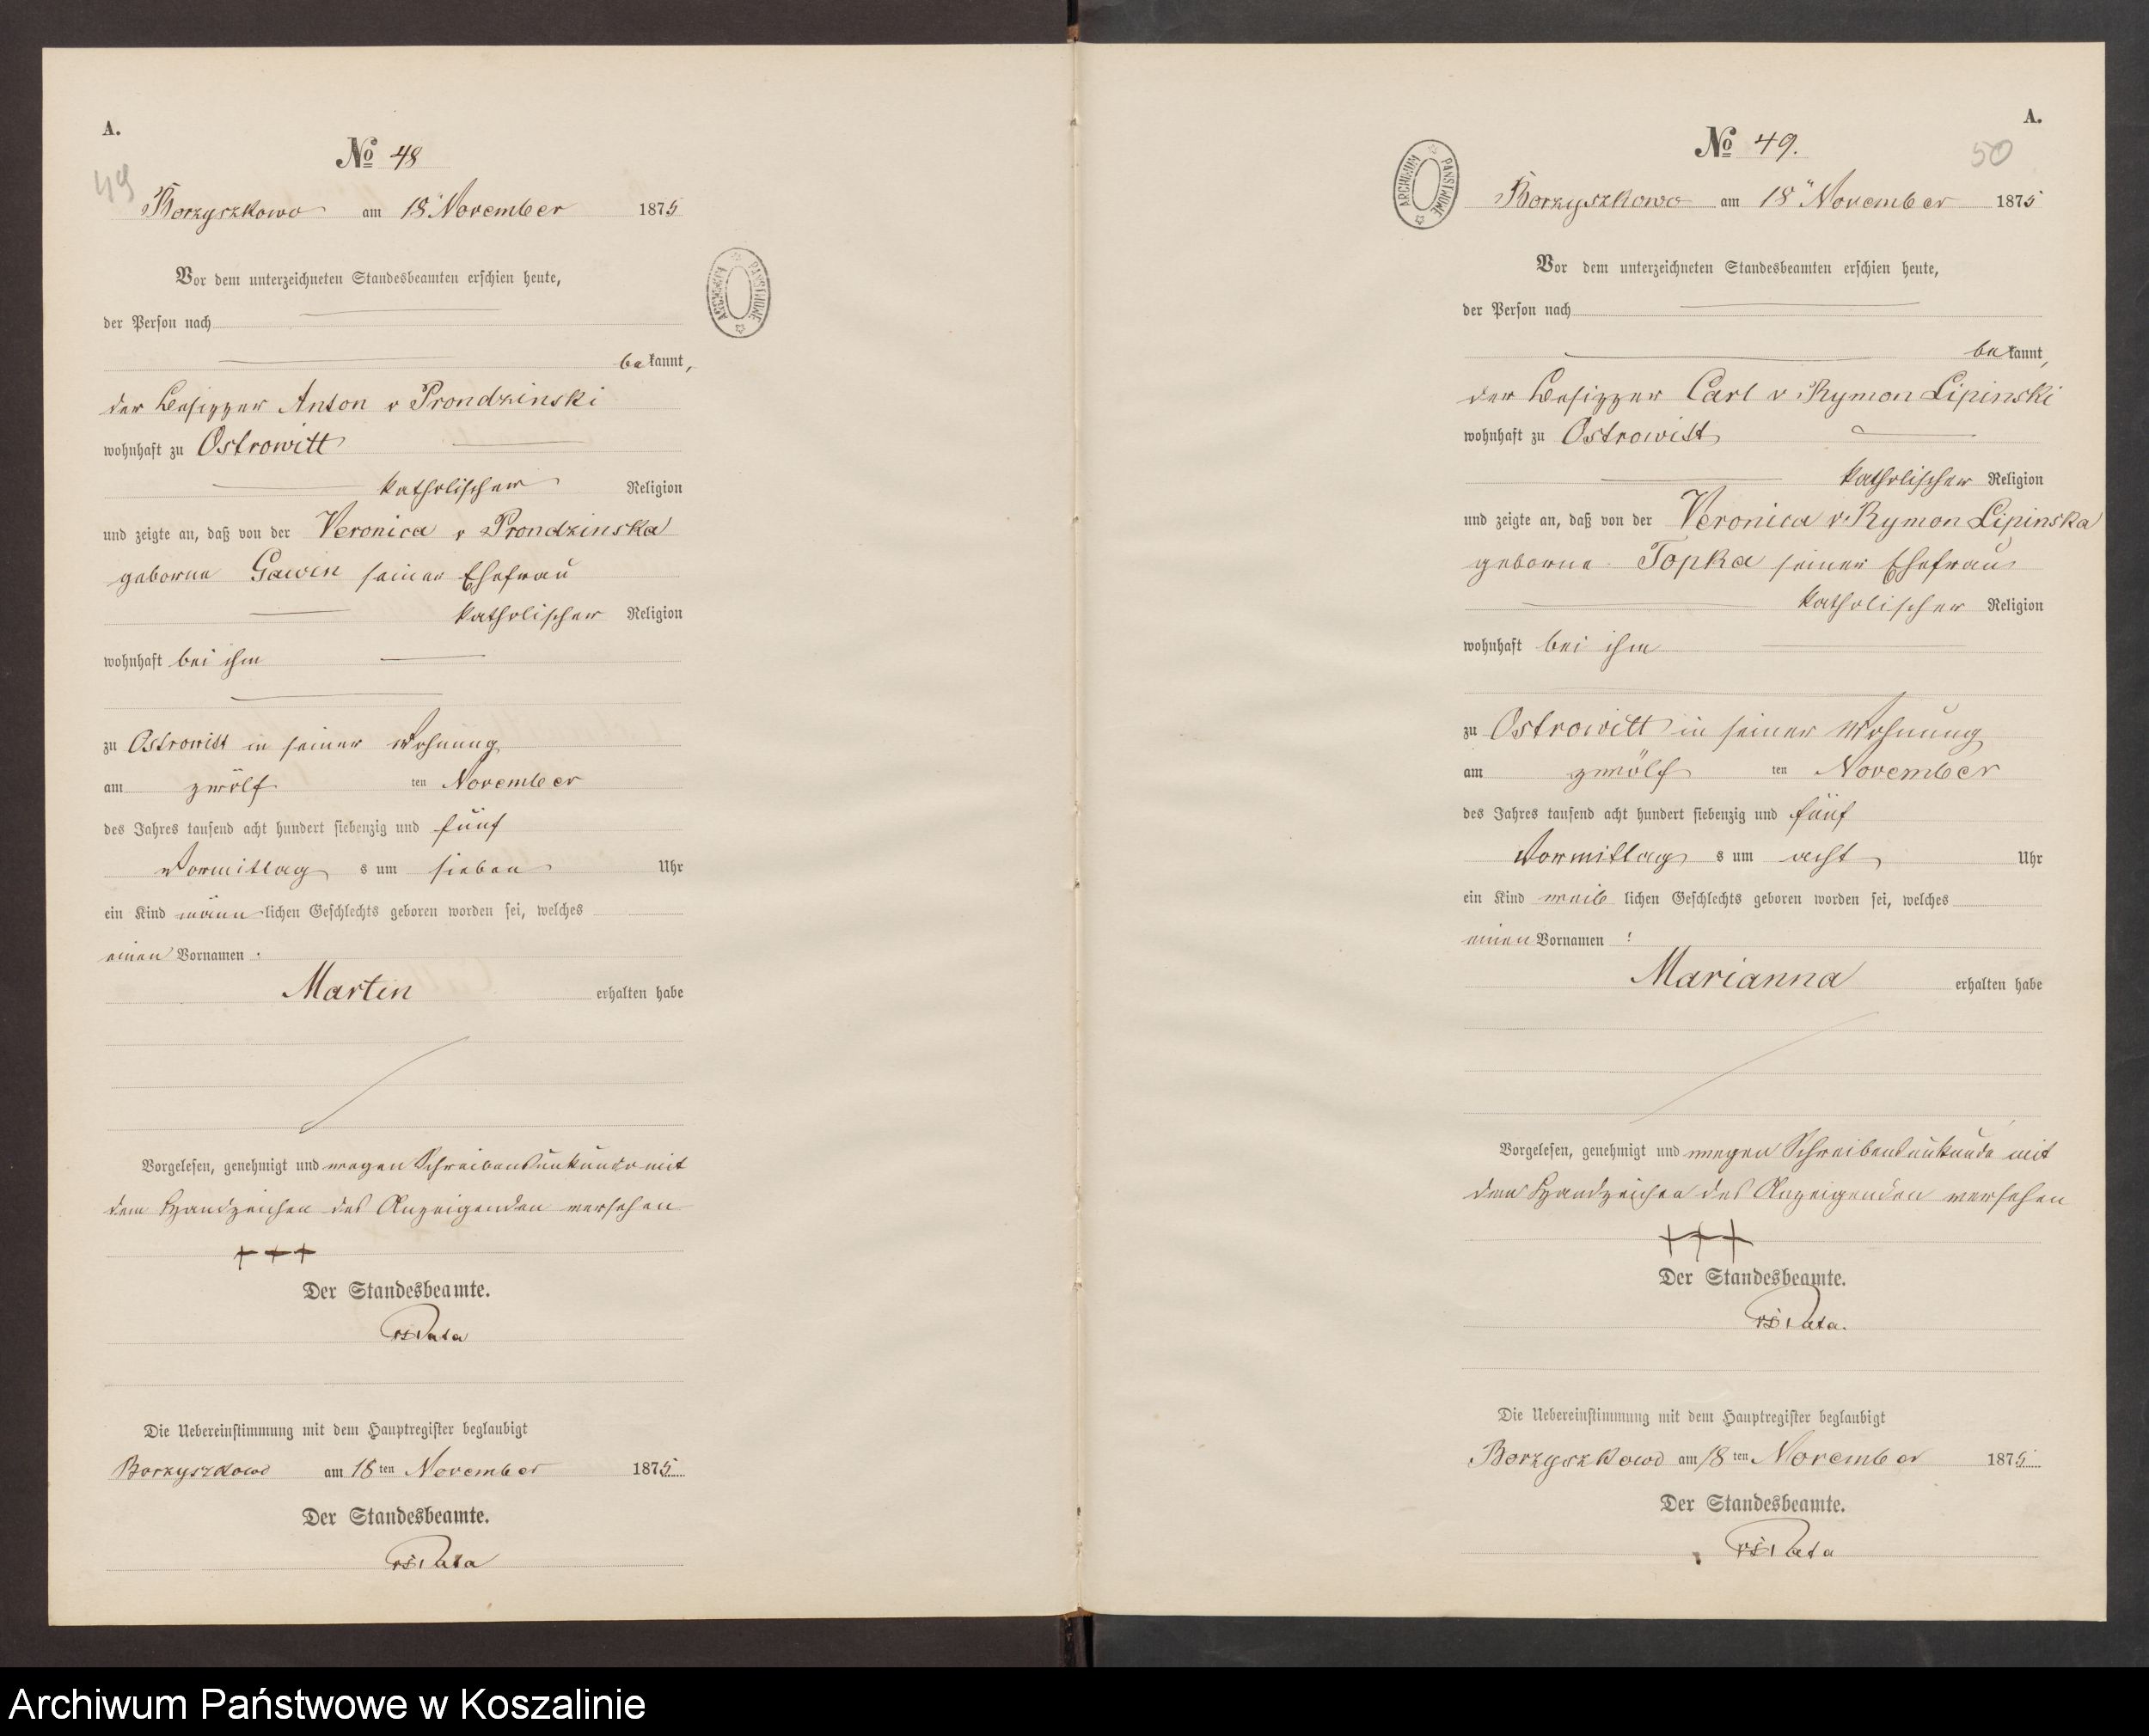 A.
No 48
49
Borzyszkowo am 18" November 1875
Vor dem unterzeichneten Standesbeamten erschien heute,
der Person nach
bekannt,
der Besitzer Anton v Prondzinski
wohnhaft zu Ostrowitt
katholischer Religion
und zeigte an, daß von der Veronica v Prondzinska
geborne Gawin seiner Ehefrau
katholischer Religion
wohnhaft bei ihm
zu Ostrowitt in seiner Wohnung
am zwölf ten November
des Jahres tausend acht hundert siebenzig und fünf
Vormittag s um sieben Uhr
ein Kind männlichen Geschlechts geboren worden sei, welches
einen Vornamen :
Martin erhalten habe
Vorgelesen, genehmigt und wegen Schreibensunkunde mit
dem Handzeichen des Anzeigenden versehen
+++
Der Standesbeamte.
Die Uebereinstimmung mit dem Hauptregister beglaubigt
Borzyszkowo am 18 ten November 1875
Der Standesbeamte.
ARCHIWUM PAŃSTWOWE
A.
No 49.
50
ARCHIWUM PAŃSTWOWE
Borzyszkowo am 18" November 1875
Vor dem unterzeichneten Standesbeamten erschien heute,
der Person nach
bekannt,
der Besitzer Carl v Rymon Lipinski
wohnhaft zu Ostrowitt
katholischer Religion
und zeigte an, daß von der Veronica v Rymon Lipinska
geborne Topka seiner Ehefrau
katholischer Religion
wohnhaft bei ihm
zu Ostrowitt in seiner Wohnung
am zwölf ten November
des Jahres tausend acht hundert siebenzig und fünf
Vormittag s um acht Uhr
ein Kind weiblichen Geschlechts geboren worden sei, welches
einen Vornamen :
Marianna erhalten habe
Vorgelesen, genehmigt und wegen Schreibensunkunde mit
dem Handzeichen des Anzeigenden versehen
+++
Der Standesbeamte.
Die Uebereinstimmung mit dem Hauptregister beglaubigt
Borzyszkowo am 18 ten November 1875
Der Standesbeamte.
Archiwum Państwowe w Koszalinie